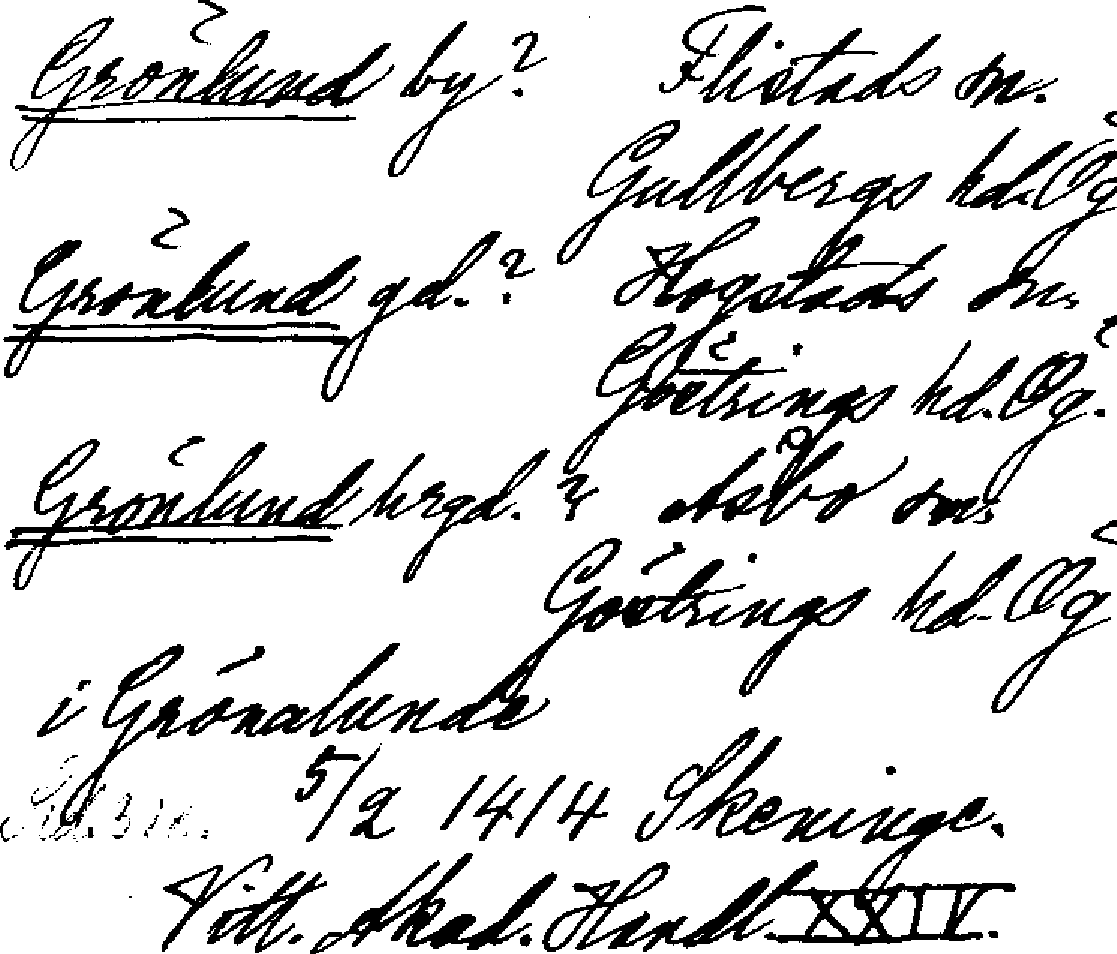 Grönlund by? Flistads sn.
Gullbergs hd. Ög
Grönlund gd.? Hogstads sn.
Göstrings hd. Ög.
Grönlund hrgd.? Åsbo sn.
Göstrings hd. Ög
i Grönalunde
5/2 1414 Skeninge.
Vitt. Akad. Handl. XXIV.